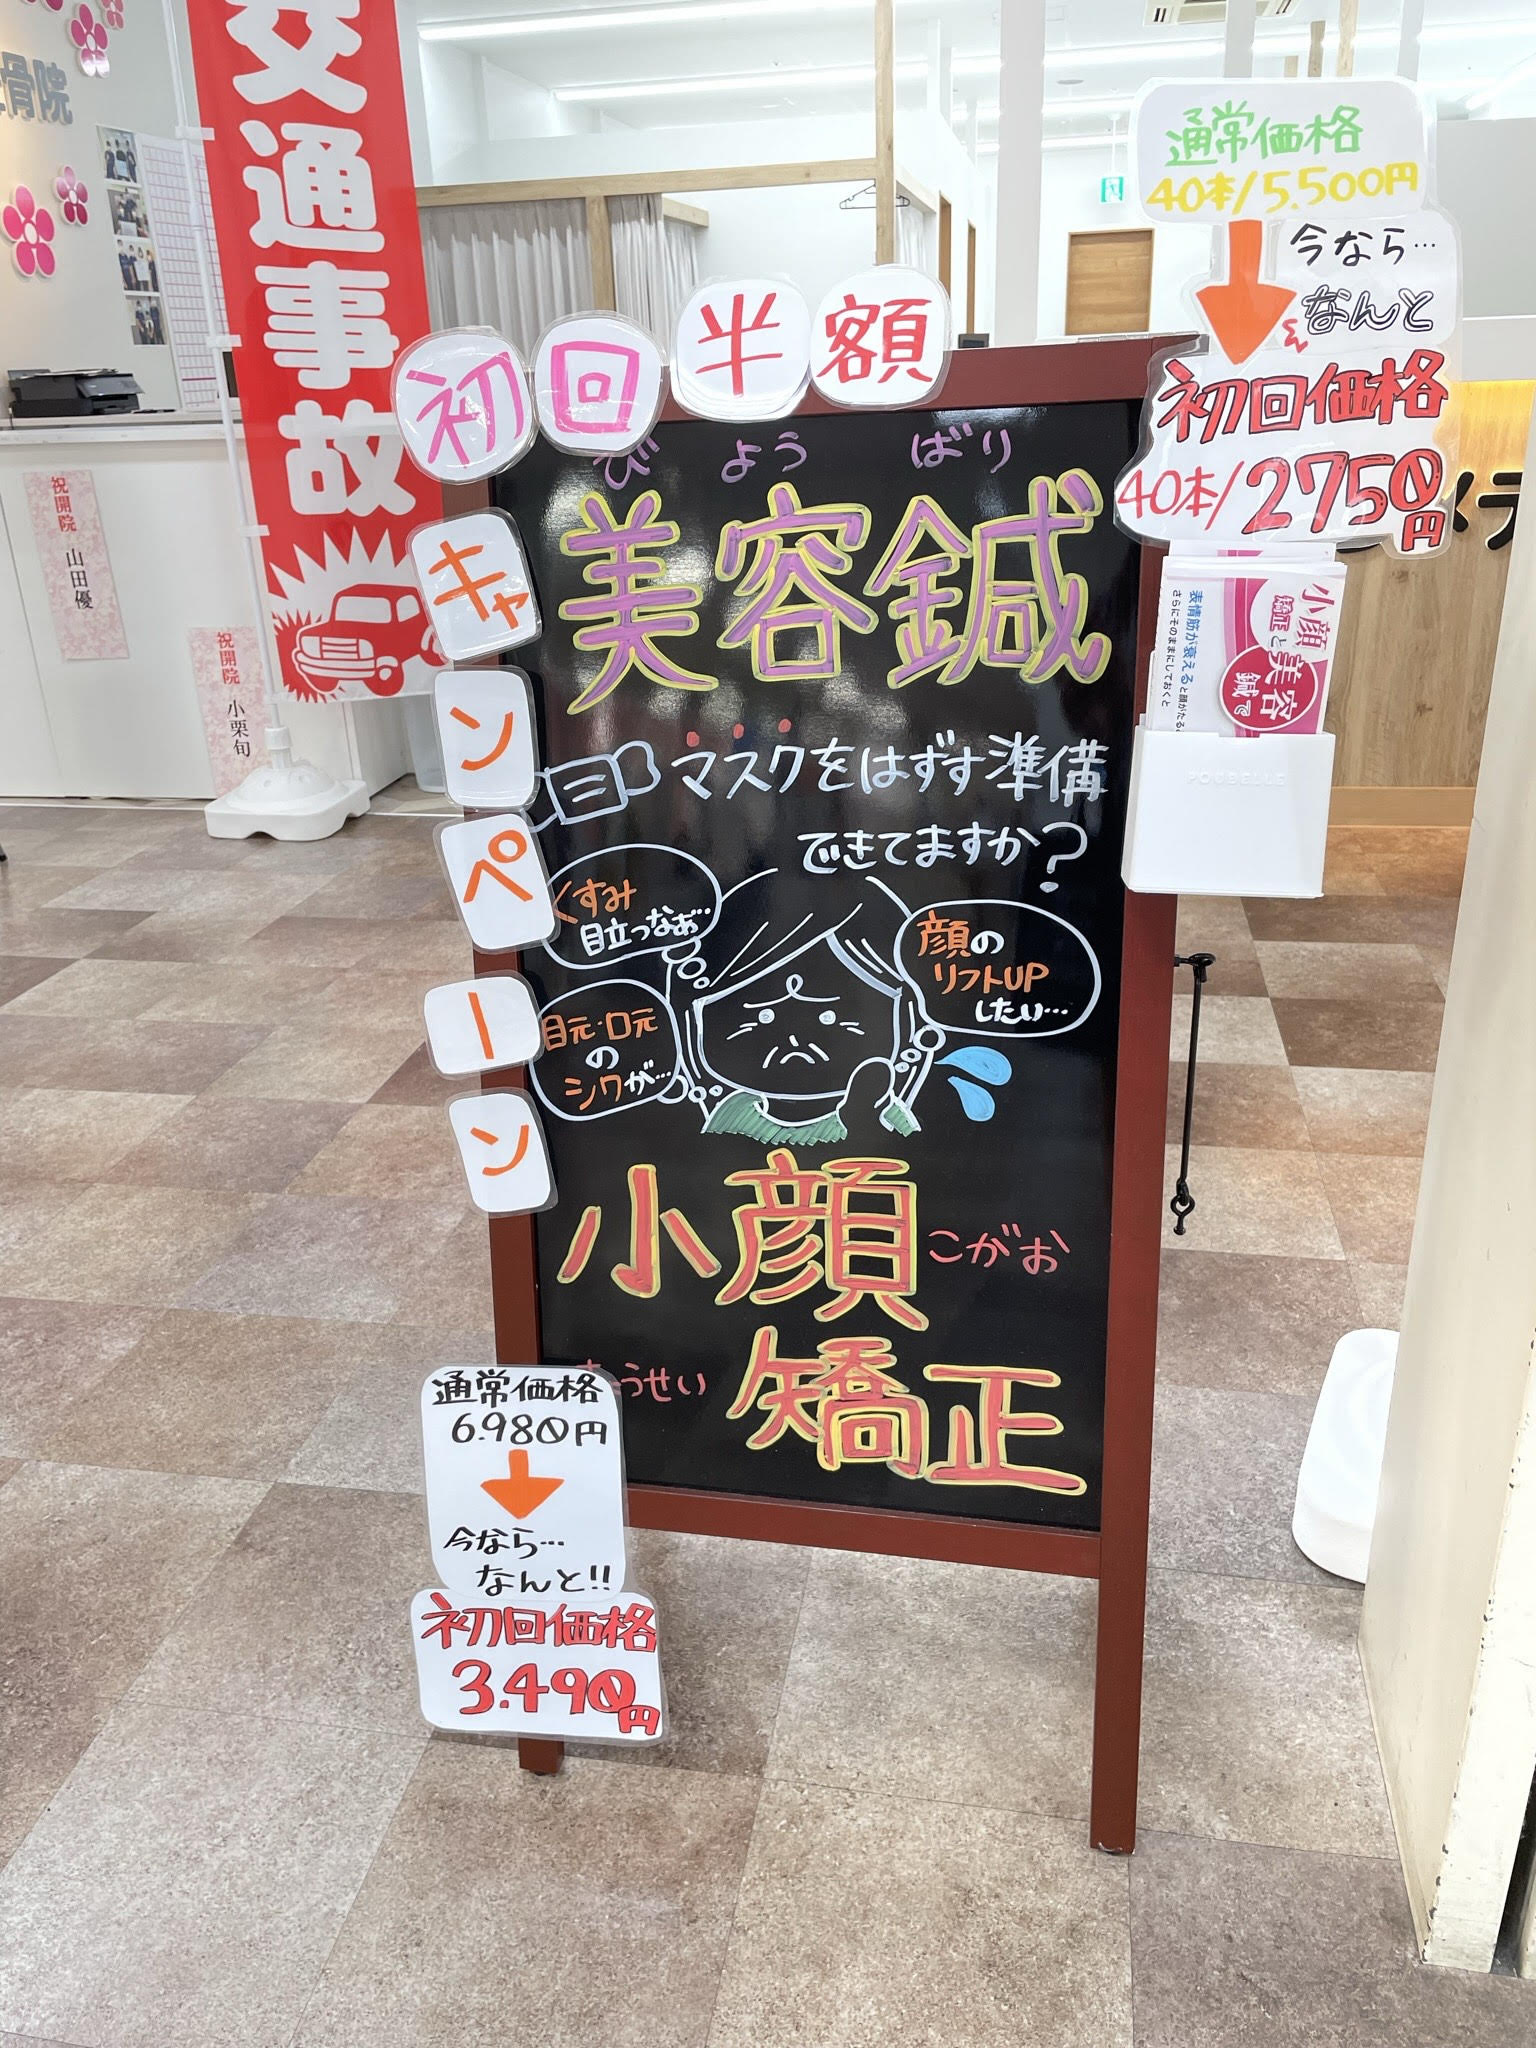 骨院
交通事故
祝開院 山田優
祝開院 小栗旬
通常価格
40本/5,500円
今なら…
なんと
初回価格
40本/2750円
初回半額
キャンペーン
びようばり
美容鍼
マスクをはずす準備
できてますか?
くすみ
目立つなぁ…
顔の
リフトUP
したい…
目元・口元
の
シワが…
小顔
こがお
うせい
矯正
通常価格
6.980円
今なら…
なんと!!
初回価格
3.490円
小顔
矯正と
美容
鍼で
表情筋が衰えると顔がたる
さらにそのままにしておくと
POUBELLE
メデ